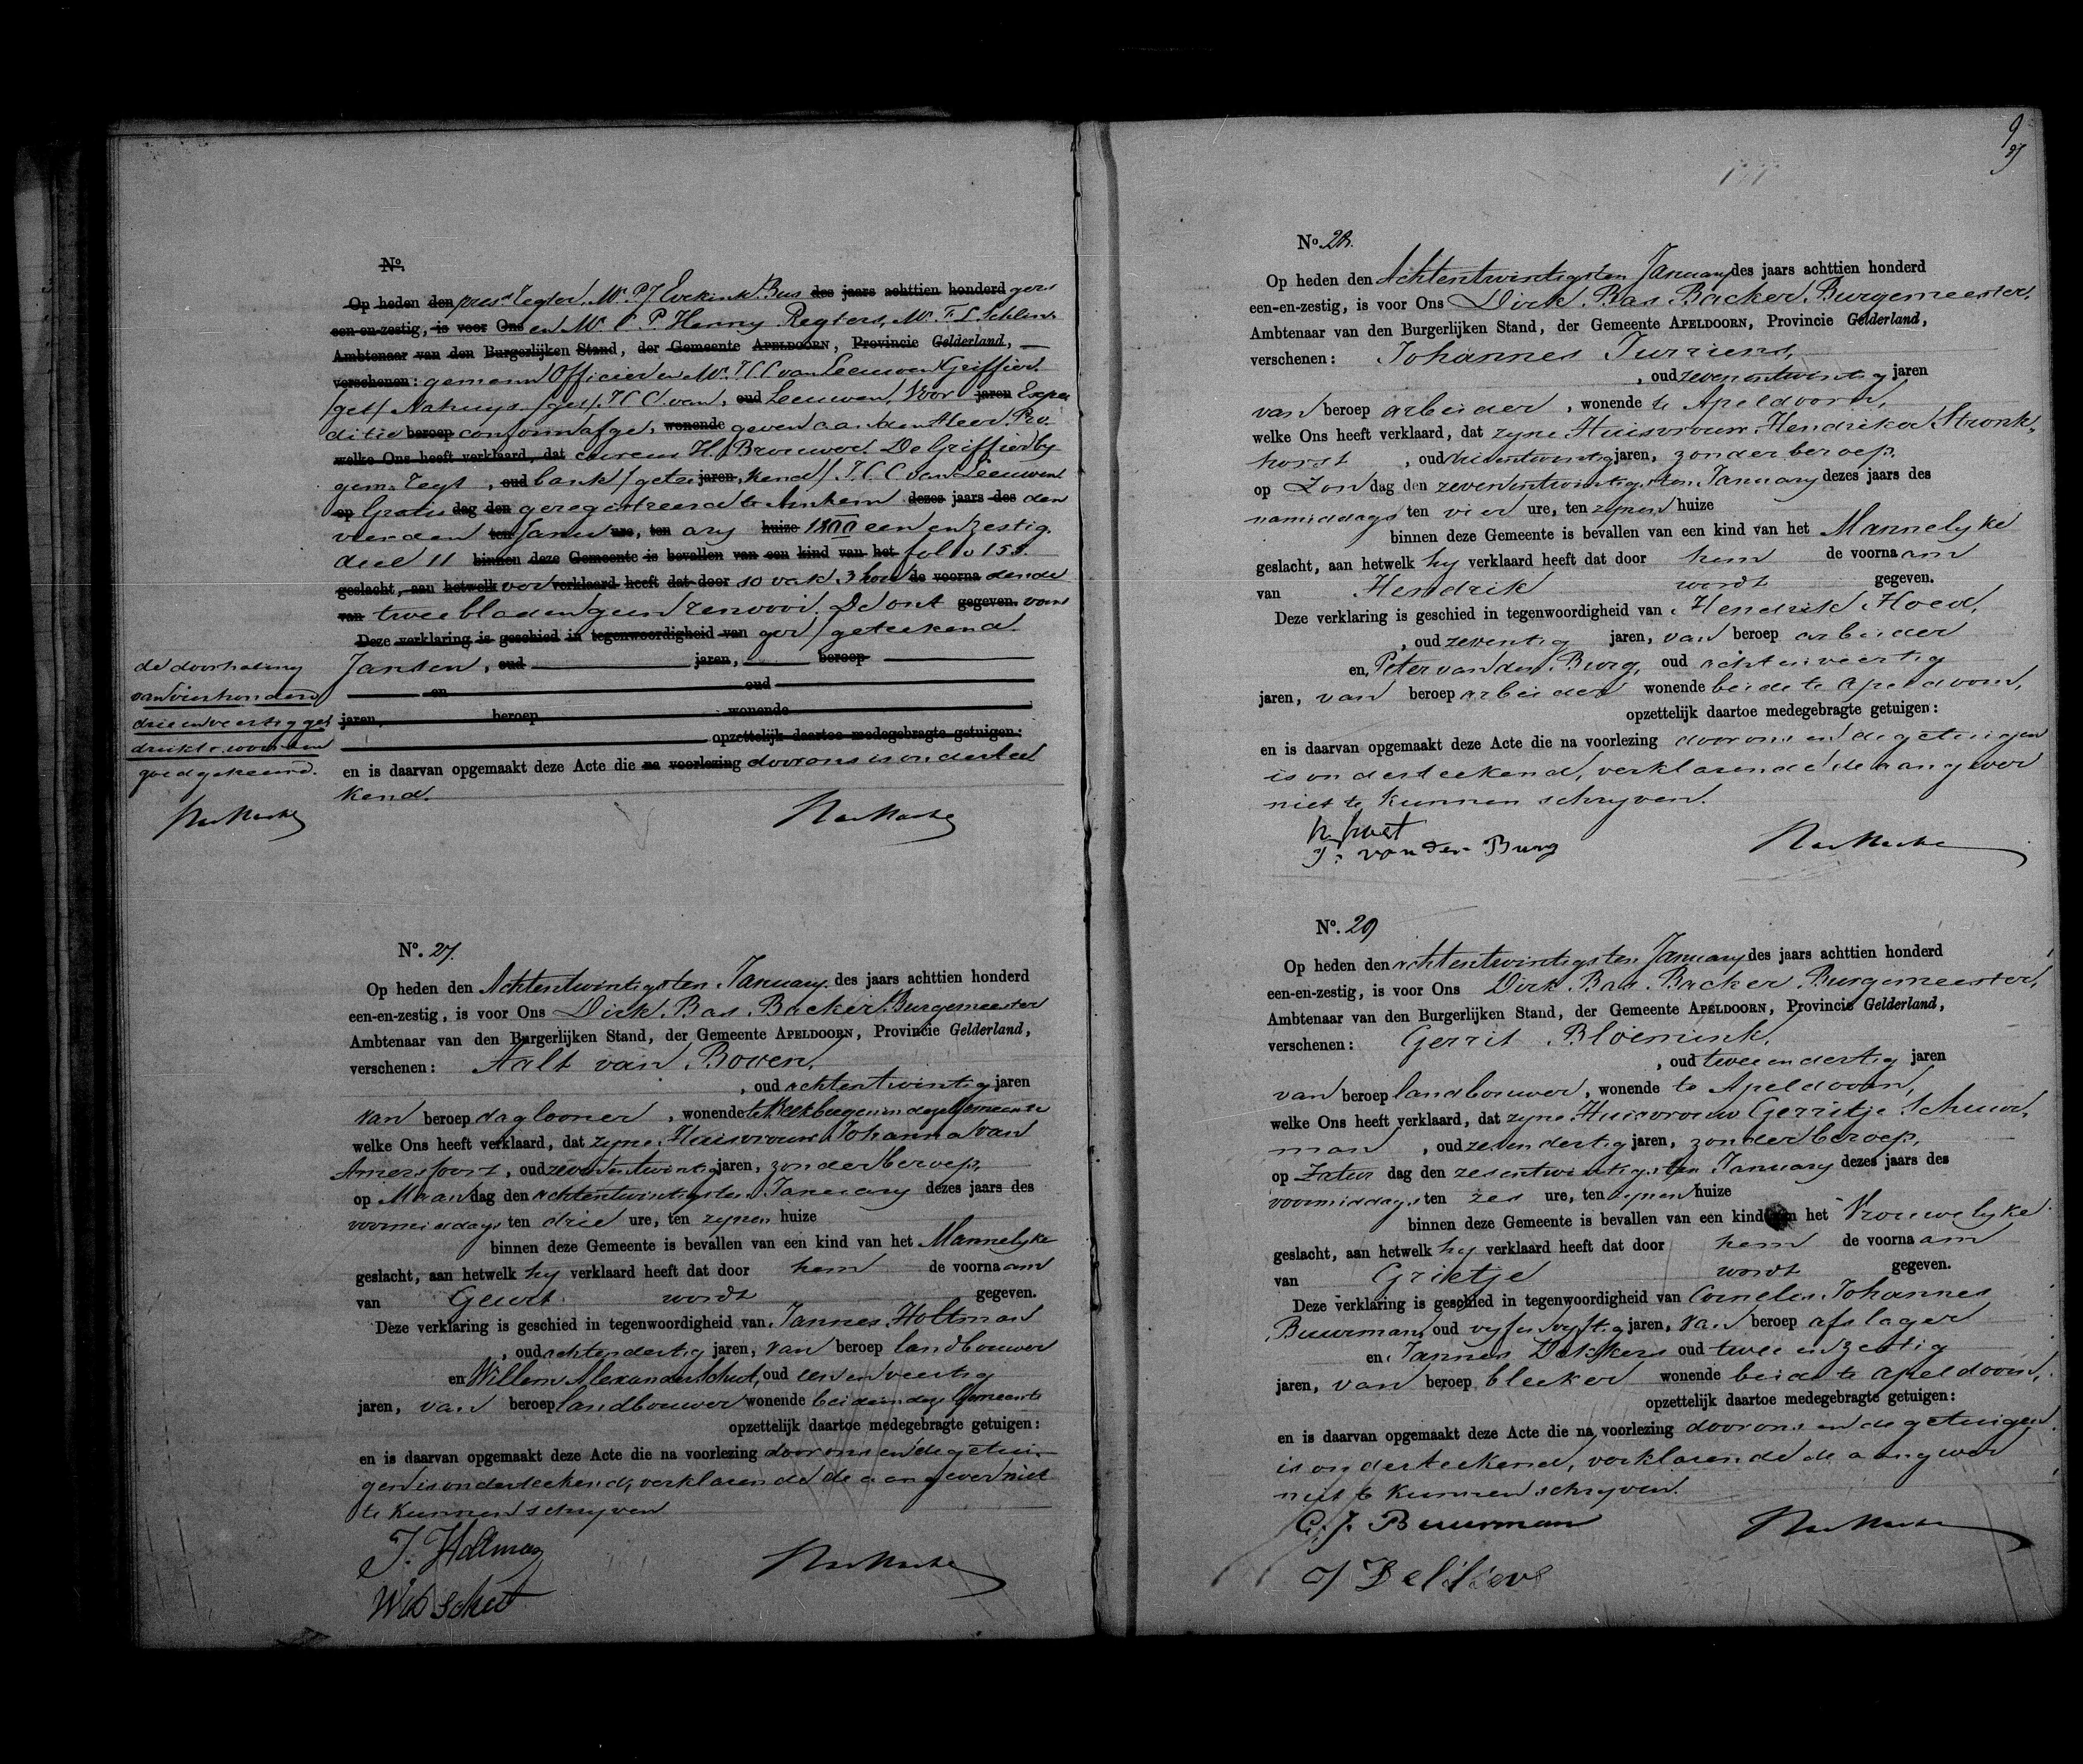 9
N°.
Op heden den pres.t Tegter. Mr. P J Evekink Bus des jaars achttien honderd gers
een-en-zestig, is voor Ons en Mr. C. P. Henny Regters, Mr. F. L. Schlin
Ambtenaar van den Burgerlijken Stand, der Gemeente APELDOORN, Provincie Gelderland,
verschenen: gemann Officier en Mr. J C C van Leeuwen Griffier
/get/ Nahuys /get/ J C C van, oud Leeuwen, Voor jaren Expe
ditie beroep conform afge, wonende geven aan den Heer Pro
welke Ons heeft verklaard, dat cureur H. Brouwer. De Griffier by
gem. Tegt, oud bank /getee jaren, kend/ J. C. C van Leeuwen
op Gratis dag den geregistreerd te Arnhem dezes jaars des den
vierden ten Janu ure, ten ary huize 1800 een en zestig.
deel 11 binnen deze Gemeente is bevallen van een kind van het folo 153.
geslacht, aan hetwelk vor verklaard heeft dat door 10 vak 3 hou de voorna dende
van twee bladen geen renvooi. De ont gegeven. van
Deze verklaring is geschied in tegenwoordigheid van ger /geteekend
Jansen, oud jaren, beroep
en oud
jaren, beroep wonende
opzettelijk daartoe medegebragte getuigen:
en is daarvan opgemaakt deze Acte die na voorlezing door ons is onderteel
kend.
de doorhaling
van vierhonderd
drie en veertig ge
drukte woorden
goedgekeurd.
N°. 27.
Op heden den Achtentwintigsten January des jaars achttien honderd
een-en-zestig, is voor Ons Dirk Bas Backer Burgemeester
Ambtenaar van den Burgerlijken Stand, der Gemeente APELDOORN, Provincie Gelderland,
verschenen: Aalt van Boven,
, oud achtentwintig jaren
van beroep daglooner, wonende te Beekbergen in deze Gemeente
welke Ons heeft verklaard, dat zyne Huisvrouw Johanna van
Amersfoort, oud zevenentwintig jaren, zonder beroep,
op Maandag den achtentwintigsten January dezes jaars des
voormiddags ten drie ure, ten zynen huize
binnen deze Gemeente is bevallen van een kind van het Mannelyke
geslacht, aan hetwelk hy verklaard heeft dat door hem de voornaam
van Geurt wordt gegeven.
Deze verklaring is geschied in tegenwoordigheid van Jannes Holtman
, oud achtendertig jaren, van beroep landbouwer
en Willem Alexander Schut, oud een en veertig
jaren, van beroep landbouwer wonende beide in deze Gemeente
opzettelijk daartoe medegebragte getuigen:
en is daarvan opgemaakt deze Acte die na voorlezing door ons en de getui-
gen is onderteekend, verklarende de aangever niet
te kunnen schryven
J. Holtman
W A Schut
N°. 28.
Op heden den Achtentwintigsten January des jaars achttien honderd
een-en-zestig, is voor Ons Dirk Bas Backer Burgemeester,
Ambtenaar van den Burgerlijken Stand, der Gemeente APELDOORN, Provincie Gelderland,
verschenen: Johannes Jurriens,
, oud zevenentwintig jaren
van beroep arbeider, wonende te Apeldoorn,
welke Ons heeft verklaard, dat zyne Huisvrouw Hendrika Stronk-
horst, oud drieentwintig jaren, zonder beroep,
op Zondag den zevenentwintigsten January dezes jaars des
namiddags ten vier ure, ten zynen huize
binnen deze Gemeente is bevallen van een kind van het Mannelyke
geslacht, aan hetwelk hy verklaard heeft dat door hem de voornaam
van Hendrik wordt gegeven.
Deze verklaring is geschied in tegenwoordigheid van Hendrik Hoed,
, oud zeventig jaren, van beroep arbeider
en Peter van den Burg, oud achtenveertig
jaren, van beroep arbeider wonende beide te Apeldoorn,
opzettelijk daartoe medegebragte getuigen:
en is daarvan opgemaakt deze Acte die na voorlezing door ons en de getuigen
is onderteekend, verklarende de aangever
niet te kunnen schryven.
P. van der Burg
N°. 29
Op heden den achtentwintigsten January des jaars achttien honderd
een-en-zestig, is voor Ons Dirk Bas Backer Burgemeester,
Ambtenaar van den Burgerlijken Stand, der Gemeente APELDOORN, Provincie Gelderland,
verschenen: Gerrit Bloemink,
, oud twee en dertig jaren
van beroep landbouwer, wonende te Apeldoorn,
welke Ons heeft verklaard, dat zyne Huisvrouw Gerritje Schuur-
man, oud zevendertig jaren, zonder beroep,
op Zaturdag den zesentwintigsten January dezes jaars des
voormiddags ten zes ure, ten zynen huize
binnen deze Gemeente is bevallen van een kind van het Vrouwelyke
geslacht, aan hetwelk hy verklaard heeft dat door hem de voornaam
van Grietje wordt gegeven.
Deze verklaring is geschied in tegenwoordigheid van Cornelis Johannes
Buurman, oud vyfenvyftig jaren, van beroep afslager
en Jannes Dekkers oud twee en zestig
jaren, van beroep bleeker wonende beide te Apeldoorn,
opzettelijk daartoe medegebragte getuigen:
en is daarvan opgemaakt deze Acte die na voorlezing door ons en de getuigen
is onderteekend, verklarende de aangever
niet te kunnen schryven.
C. J. Buurman